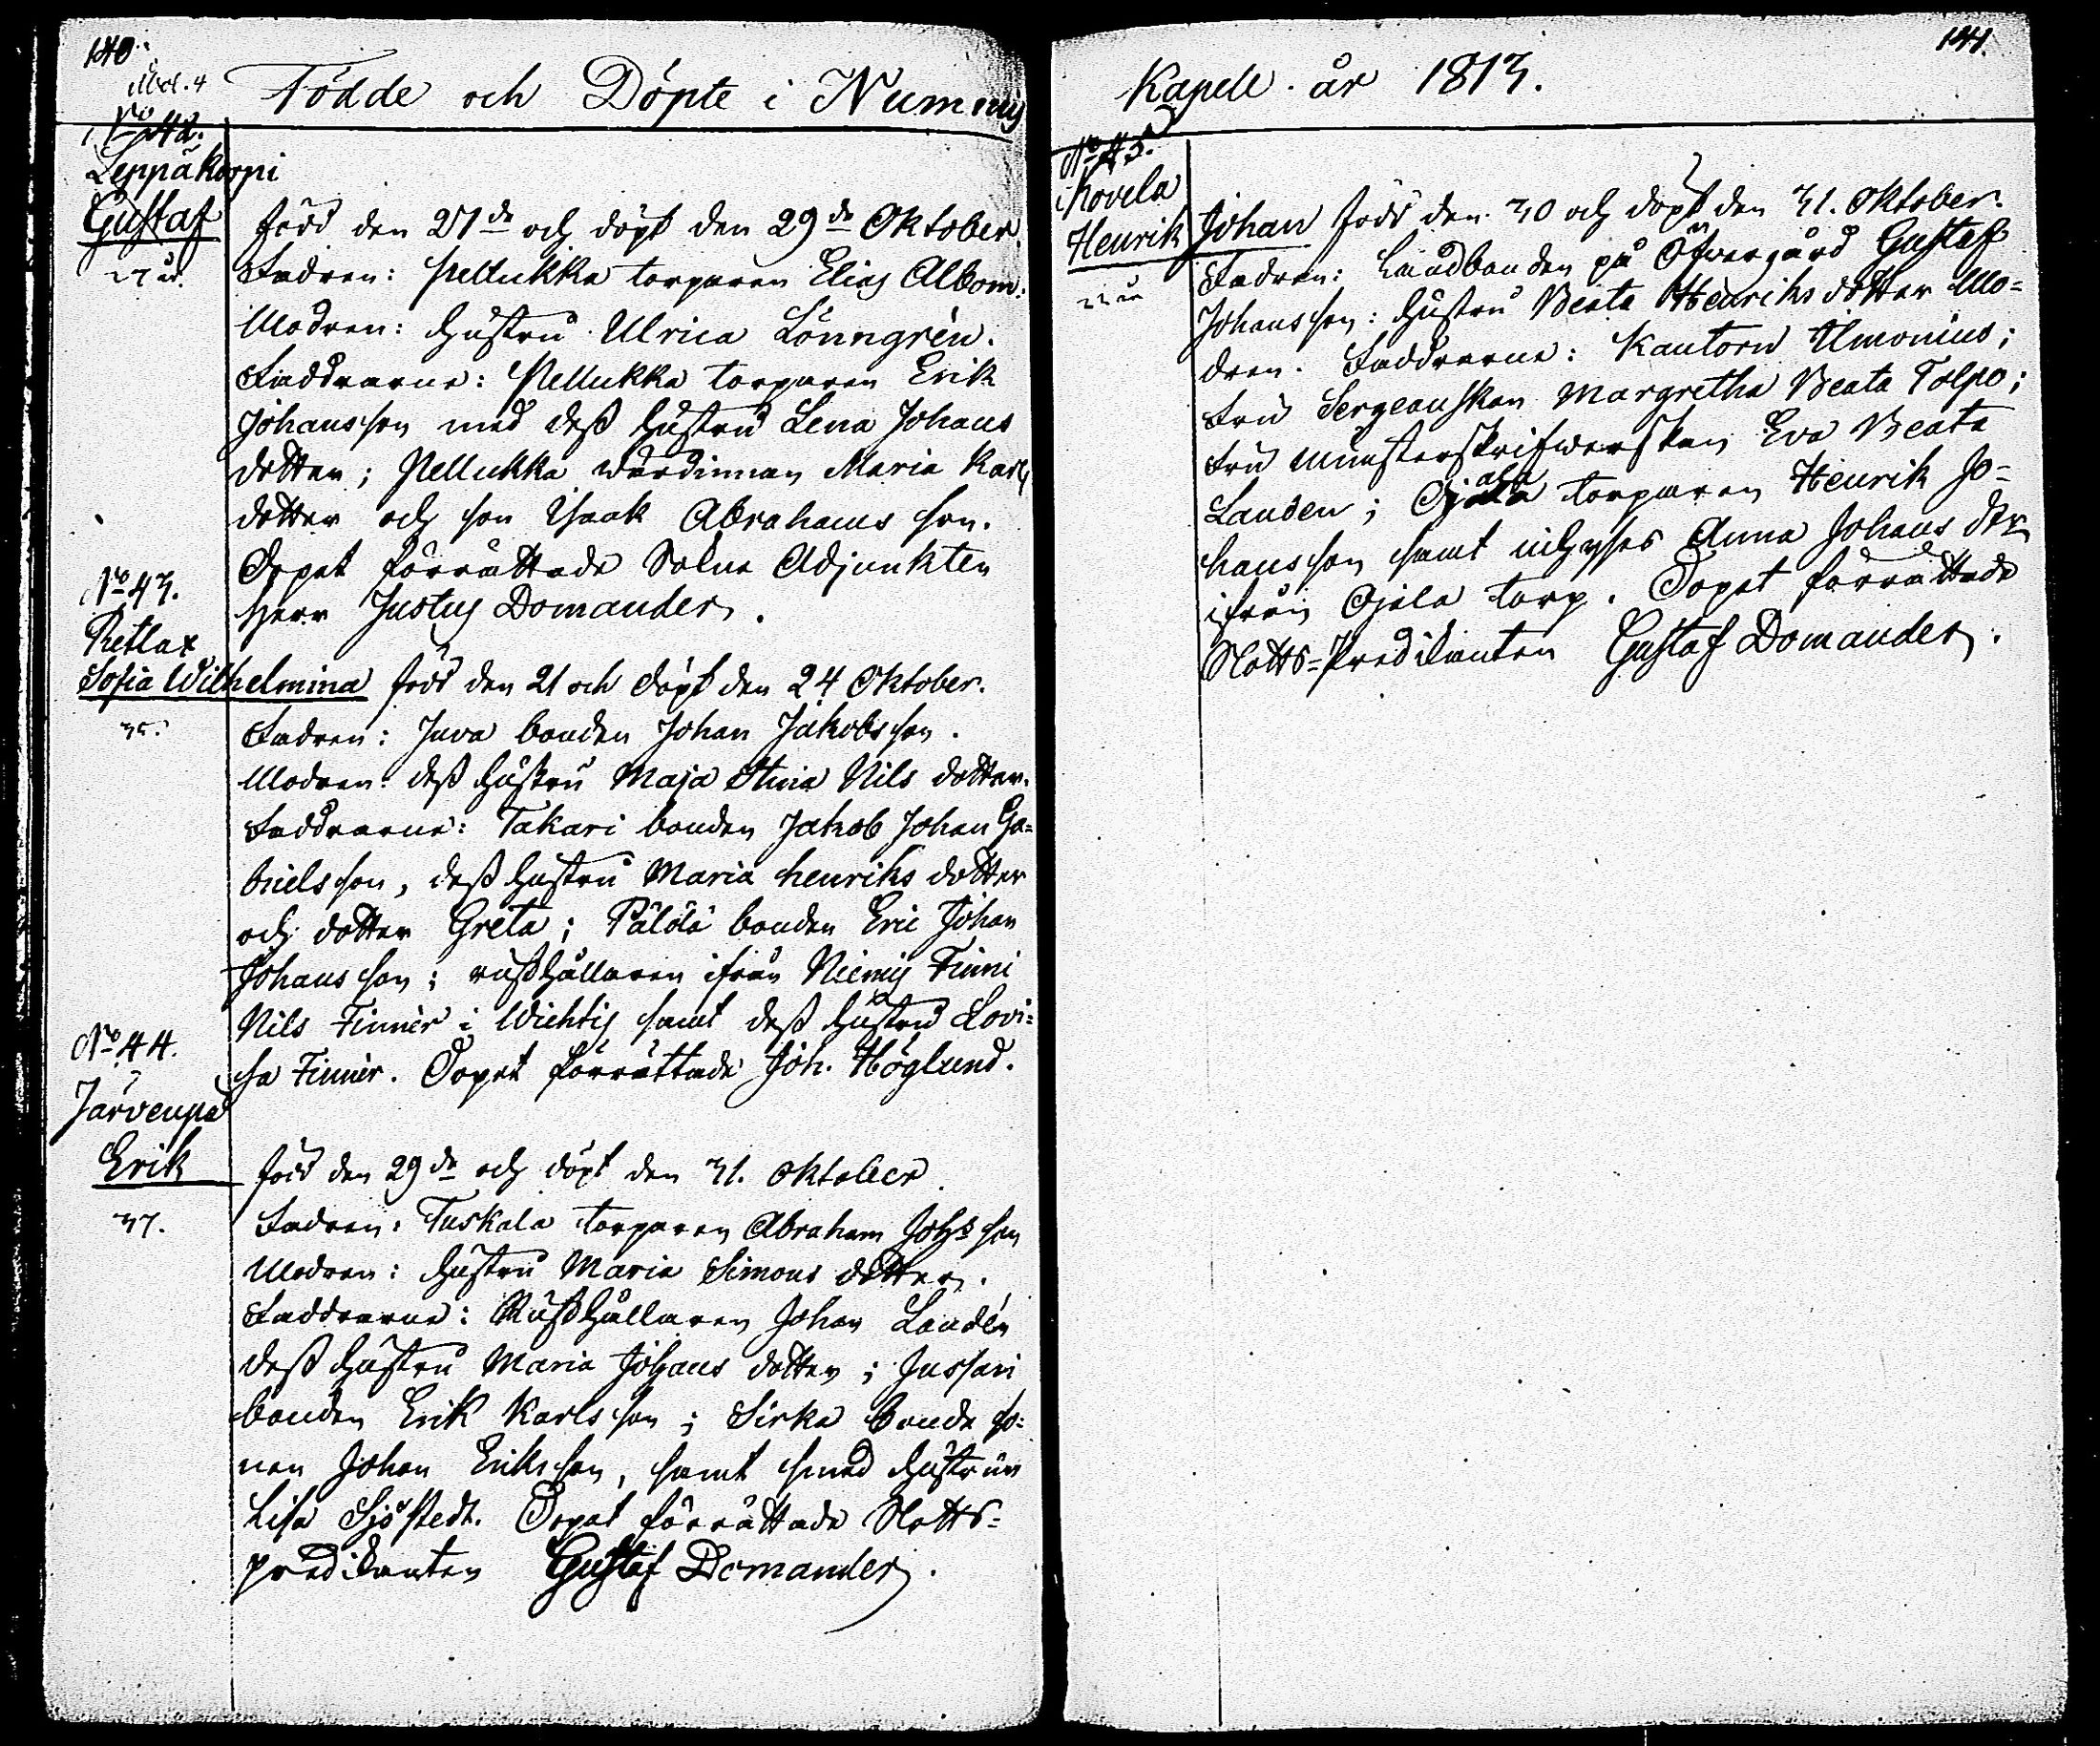 140.
Födde och Döpte i Nummis
No 42.
Leppäkorpi
Gustaf född den 27de och döpt den 29de Oktober.
27 år. Fadren: Pellukka torparen Elias Albom.
Modren: Hustru Ulrica Lönngrén.
Faddrarne: Pellukka torparen Erik
Johansson med dess hustru Lena Johans
dotter; Pellukka värdinnan Maria Karls
dotter och son Isaak Abrahams son.
Dopet förrättade Solne Adjunkten
Herr Justus Domander.
No 43.
Retlax
Sofia Wilhelmina född den 21 och döpt den 24 Oktober.
35. Fadren: Juva bonden Johan Jakobsson.
Modren: dess hustru Maja Stina Nils dotter.
Faddrarne: Takari bonden Jakob Johan Ga=
brielsson, dess hustru Maria Henriks dotter
och dotter Greta; Pälölä bonden Eric Johan
Johansson; rusthållaren ifrån Niemis Finni
Nils Finnér i Wichtis samt dess hustru Lovi=
sa Finnér. Dopet förrättade Joh. Höglund.
No 44.
Järvenpä
Erik född den 29de och döpt den 31. Oktober.
37. Fadren: Tuskala torparen Abraham Johs son
Modren: Hustru Maria Simons dotter.
Faddrarne: Rusthållaren Johan Landén
dess hustru Maria Johans dotter; Jussari
bonden Erik Karlsson; Sirka bonde so=
nen Johan Eriksson, samt smed hustrun
Lisa Sjöstedt. Dopet förrättade Slotts=
predikanten Gustaf Domander.
141.
Kapell år 1813.
No 45.
Hovela
Henrik Johan född den 30 och döpt den 31. Oktober.
Fadren: Landbonden på Öfvergård Gustaf
Johansson: hustru Beata Henriks dotter Mo=
dren. Faddrarne: Kantorn Ilmonius;
Fru Sergeanskan Margretha Beata Tolpo;
Fru Munsterskrifwerskan Eva Beata
Landen; Ojala torparen Henrik Jo=
hansson samt inhyses Anna Johans dtr
ifrån Ojala torp. Dopet förrättade
Slotts=Predikanten Gustaf Domander.